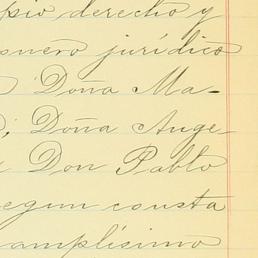 pio derecho y
snero jurídico
Doña Ma-
; Doña Ange
Don Pablo
egun consta
amplísimo